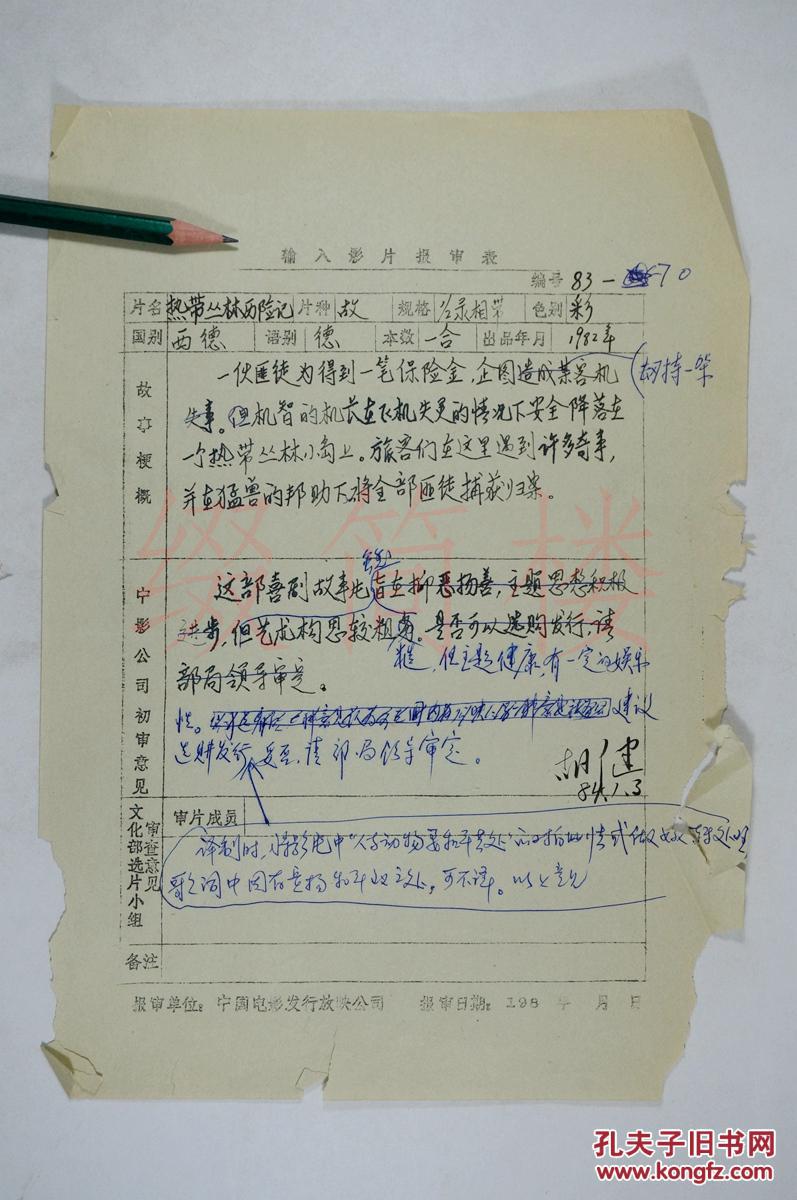 输入影片报审表
编号 83-670
片名 热带丛林历险记 片种 故 规格 录相带 色别 彩
国别 西德 语别 德 本数 一合 出品年月 1982年
故事梗概
一伙匪徒为得到一笔保险金,企图造成某客机
劫持一架
失事。但机智的机长在飞机失灵的情况下安全降落在
一个热带丛林小岛上。旅客们在这里遇到许多奇事,
并在猛兽的帮助下将全部匪徒捕获归案。
中影公司初审意见
这部喜剧故事片旨在抑恶扬善,主题思想积极
进步,但艺术构思较粗 。是否可以选购发行,请
糙,但主题健康,有一定的娱乐
部局领导审定。
性。 建议
选购发行 请部、局领导审定。
胡健
84.1.3
文化部选片小组审查意见
审片成员
译制时,将影片中“人与动物要和平共处”的
歌词中因有意扬和平 之处,可不译。以上意见
备注
报审单位:中国电影发行放映公司 报审日期:198 年 月 日
缀简楼
孔夫子旧书网
www.kongfz.com